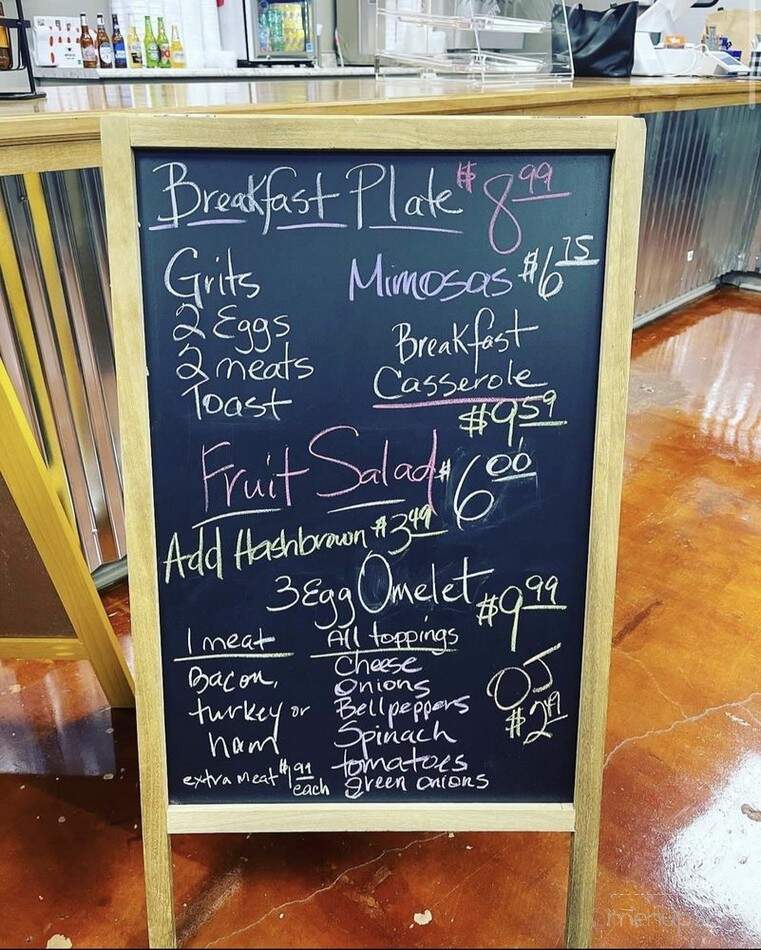 Breakfast Plate $8.99
Grits
2 Eggs
2 meats
Toast
Mimosas $6.75
Breakfast
Casserole
$9.59
Fruit Salad $6.00
Add Hashbrown $3.49
3 Egg Omelet $9.99
1 meat
Bacon,
turkey or
ham
extra meat $1.99
each
All toppings
Cheese
Onions
Bellpeppers
Spinach
tomatoes
green onions
OJ